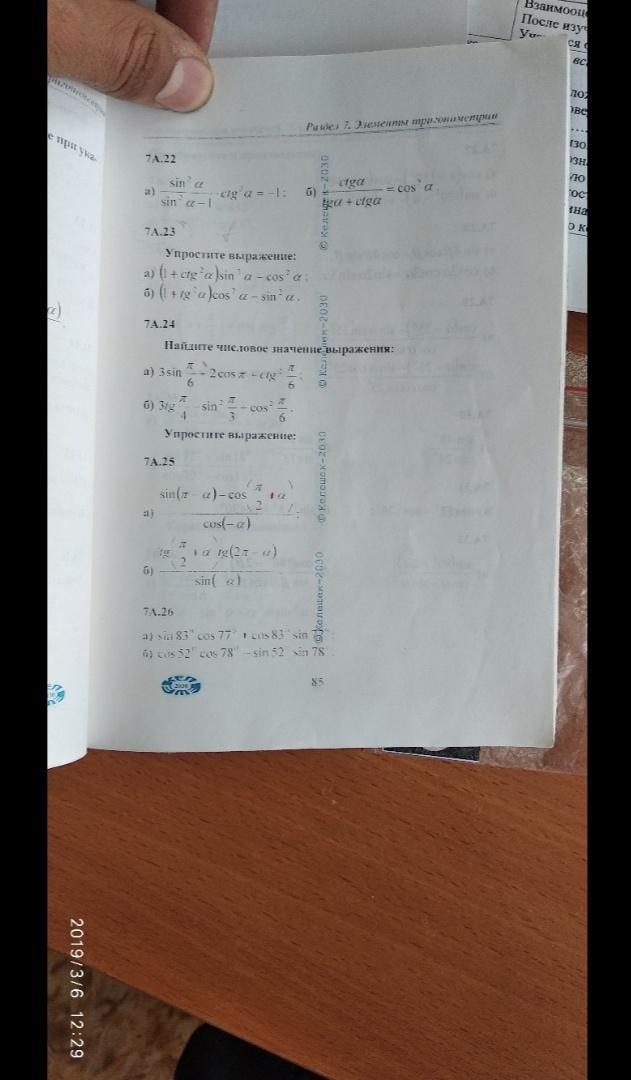 Взаимооц
После изуч
Раздел 7. Элементы тригонометрии
е при ука-
7А.22
а) sin² α / (sin² α − 1) · ctg² α = −1; б) ctgα / (tgα + ctgα) = cos² α
7А.23
Упростите выражение:
а) (1 + ctg² α) sin² α − cos² α;
б) (1 + tg² α) cos² α − sin² α.
7А.24
Найдите числовое значение выражения:
а) 3 sin π/6 2 cos π ctg² π/6;
б) 3tg π/4 sin² π/3 cos² π/6.
Упростите выражение:
7А.25
а) (sin(π − α) − cos(π/2 + α)) / cos(−α)
б) tg(π/2 + α) tg(2π − α) / sin( α)
7А.26
а) sin 83° cos 77° + cos 83° sin
б) cos 52° cos 78° − sin 52° sin 78°.
© Келешек-2030
© Келешек-2030
© Келешек-2030
© Келешек-2030
2030
85
2019/3/6 12:29